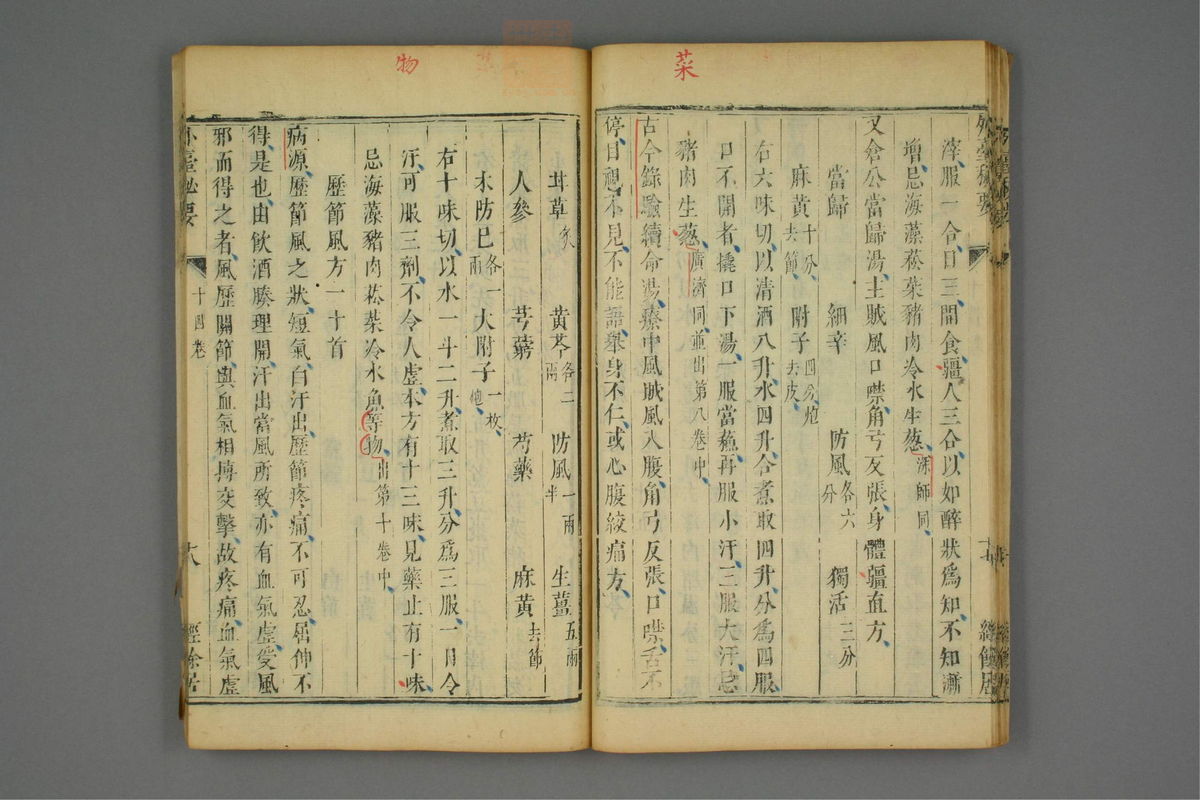 菜
外臺秘要
經餘居
滓服一合日三間食彊人三合以如醉狀爲知不知漸
增忌海藻菘菜豬肉冷水生葱深師同
又倉公當歸湯主賊風口噤角弓反張身體彊直方
當歸 細辛 防風各六分 獨活三分
麻黃十分去節 附子四分炮去皮
右六味切以清酒八升水四升合煮取四升分爲四服
口不開者撬口下湯一服當蘓再服小汗三服大汗忌
豬肉生葱廣濟同並出第八卷中
古今錄驗續命湯療中風賊風入腹角弓反張口噤舌不
停目視不見不能語舉身不仁或心腹絞痛方
物
甘草炙 黃芩各二兩 防風一兩半 生薑五兩
人參 芎藭 芍藥 麻黃去節
木防巳各一兩 大附子一枚炮
右十味切以水一斗二升煮取三升分爲三服一日令
汗可服三劑不令人虛本方有十三味見藥止有十味
忌海藻豬肉菘菜冷水魚等物出第十卷中
歷節風方一十首
病源歷節風之狀短氣白汗出歷節疼痛不可忍屈伸不
得是也由飲酒腠理開汗出當風所致亦有血氣虛受風
邪而得之者風歷關節與血氣相搏交擊故疼痛血氣虛
外臺秘要
十四卷
經餘居